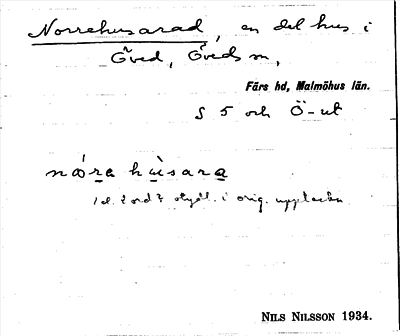 Norrehusarad, en del hus i
Öved, Öveds sn,
Färs hd, Malmöhus län.
S 5 och Ö-ut
nǿra hùsara
i orig.
NILS NILSSON 1934.